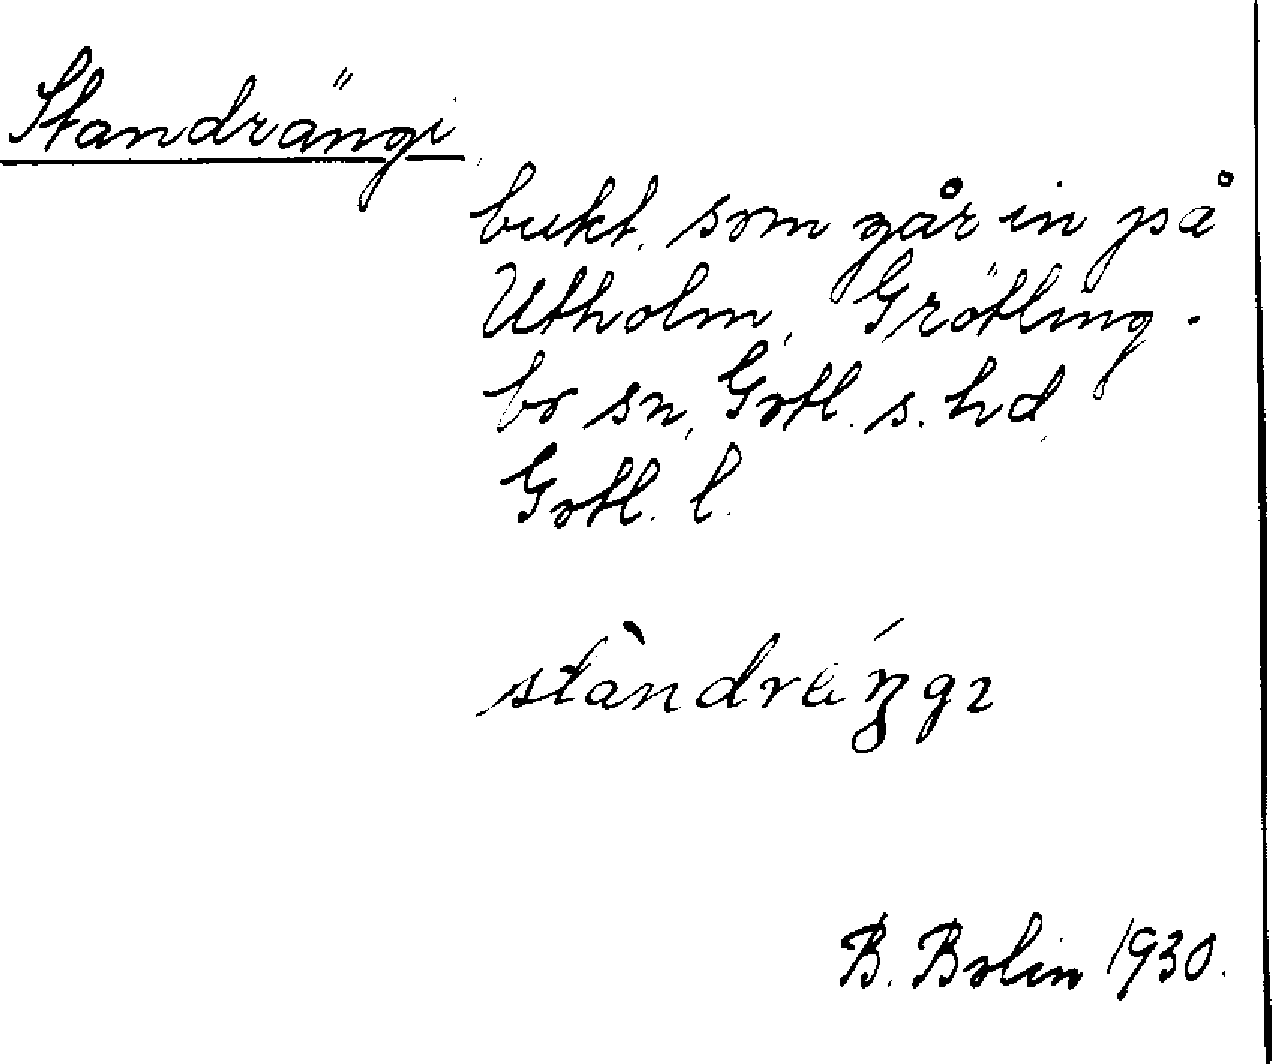 Standrängi
bukt, som går in på
Utholm, Grötling-
bo sn, Gotl. s. hd
Gotl. l.
stàndräŋgı
B. Bolin 1930.